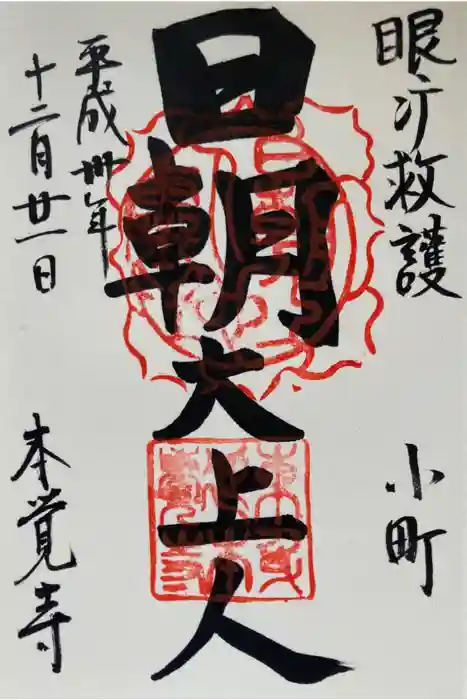 眼疒救護
小町
日朝大上人
平成卅年
十二月廿一日
本覚寺